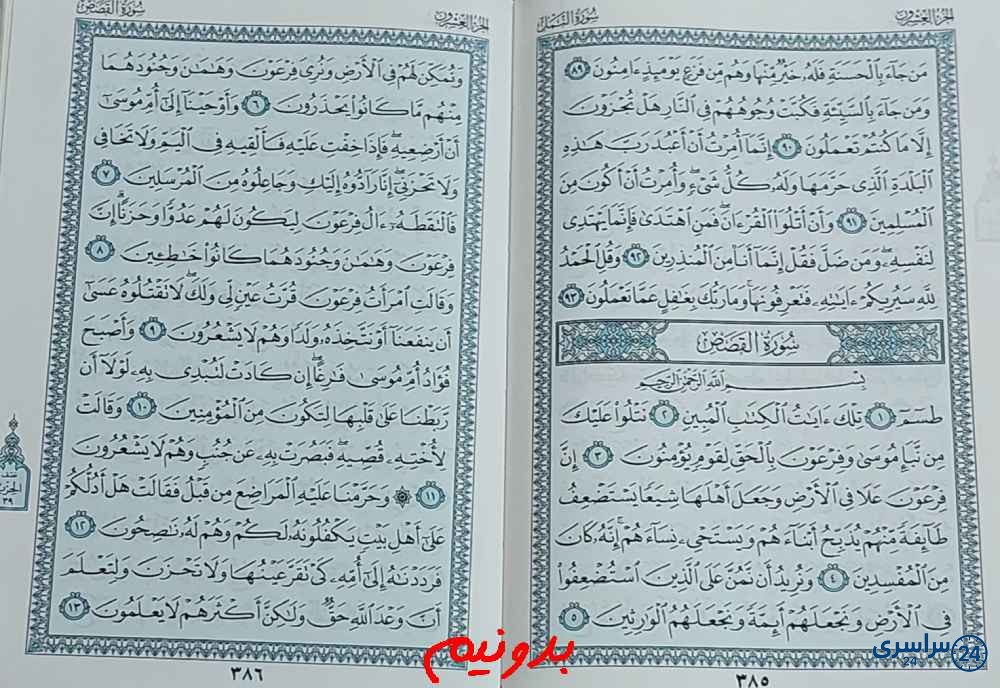 الجزء العشرون سُورَةُ النَّمل
مَن جَآءَ بِٱلْحَسَنَةِ فَلَهُۥ خَيْرٌ مِّنْهَا وَهُم مِّن فَزَعٍ يَوْمَئِذٍ ءَامِنُونَ ٨٩
وَمَن جَآءَ بِٱلسَّيِّئَةِ فَكُبَّتْ وُجُوهُهُمْ فِى ٱلنَّارِ هَلْ تُجْزَوْنَ
إِلَّا مَا كُنتُمْ تَعْمَلُونَ ٩٠ إِنَّمَآ أُمِرْتُ أَنْ أَعْبُدَ رَبَّ هَٰذِهِ
ٱلْبَلْدَةِ ٱلَّذِى حَرَّمَهَا وَلَهُۥ كُلُّ شَىْءٍ ۖ وَأُمِرْتُ أَنْ أَكُونَ مِنَ
ٱلْمُسْلِمِينَ ٩١ وَأَنْ أَتْلُوَا۟ ٱلْقُرْءَانَ ۖ فَمَنِ ٱهْتَدَىٰ فَإِنَّمَا يَهْتَدِى
لِنَفْسِهِۦ ۖ وَمَن ضَلَّ فَقُلْ إِنَّمَآ أَنَا۠ مِنَ ٱلْمُنذِرِينَ ٩٢ وَقُلِ ٱلْحَمْدُ
لِلَّهِ سَيُرِيكُمْ ءَايَٰتِهِۦ فَتَعْرِفُونَهَا ۚ وَمَا رَبُّكَ بِغَٰفِلٍ عَمَّا تَعْمَلُونَ ٩٣
سُورَةُ القَصَصِ
بِسْمِ ٱللَّهِ ٱلرَّحْمَٰنِ ٱلرَّحِيمِ
طسٓمٓ ١ تِلْكَ ءَايَٰتُ ٱلْكِتَٰبِ ٱلْمُبِينِ ٢ نَتْلُوا۟ عَلَيْكَ
مِن نَّبَإِ مُوسَىٰ وَفِرْعَوْنَ بِٱلْحَقِّ لِقَوْمٍ يُؤْمِنُونَ ٣ إِنَّ
فِرْعَوْنَ عَلَا فِى ٱلْأَرْضِ وَجَعَلَ أَهْلَهَا شِيَعًا يَسْتَضْعِفُ
طَآئِفَةً مِّنْهُمْ يُذَبِّحُ أَبْنَآءَهُمْ وَيَسْتَحْىِۦ نِسَآءَهُمْ ۚ إِنَّهُۥ كَانَ
مِنَ ٱلْمُفْسِدِينَ ٤ وَنُرِيدُ أَن نَّمُنَّ عَلَى ٱلَّذِينَ ٱسْتُضْعِفُوا۟
فِى ٱلْأَرْضِ وَنَجْعَلَهُمْ أَئِمَّةً وَنَجْعَلَهُمُ ٱلْوَٰرِثِينَ ٥
٣٨٥
الجزء العشرون سُورَةُ القَصَص
وَنُمَكِّنَ لَهُمْ فِى ٱلْأَرْضِ وَنُرِىَ فِرْعَوْنَ وَهَٰمَٰنَ وَجُنُودَهُمَا
مِنْهُم مَّا كَانُوا۟ يَحْذَرُونَ ٦ وَأَوْحَيْنَآ إِلَىٰٓ أُمِّ مُوسَىٰٓ
أَنْ أَرْضِعِيهِ ۖ فَإِذَا خِفْتِ عَلَيْهِ فَأَلْقِيهِ فِى ٱلْيَمِّ وَلَا تَخَافِى
وَلَا تَحْزَنِىٓ ۖ إِنَّا رَآدُّوهُ إِلَيْكِ وَجَاعِلُوهُ مِنَ ٱلْمُرْسَلِينَ ٧
فَٱلْتَقَطَهُۥٓ ءَالُ فِرْعَوْنَ لِيَكُونَ لَهُمْ عَدُوًّا وَحَزَنًا ۗ إِنَّ
فِرْعَوْنَ وَهَٰمَٰنَ وَجُنُودَهُمَا كَانُوا۟ خَٰطِـِٔينَ ٨
وَقَالَتِ ٱمْرَأَتُ فِرْعَوْنَ قُرَّتُ عَيْنٍ لِّى وَلَكَ ۖ لَا تَقْتُلُوهُ عَسَىٰٓ
أَن يَنفَعَنَآ أَوْ نَتَّخِذَهُۥ وَلَدًا وَهُمْ لَا يَشْعُرُونَ ٩ وَأَصْبَحَ
فُؤَادُ أُمِّ مُوسَىٰ فَٰرِغًا ۖ إِن كَادَتْ لَتُبْدِى بِهِۦ لَوْلَآ أَن
رَّبَطْنَا عَلَىٰ قَلْبِهَا لِتَكُونَ مِنَ ٱلْمُؤْمِنِينَ ١٠ وَقَالَتْ
لِأُخْتِهِۦ قُصِّيهِ ۖ فَبَصُرَتْ بِهِۦ عَن جُنُبٍ وَهُمْ لَا يَشْعُرُونَ
١١ ۞ وَحَرَّمْنَا عَلَيْهِ ٱلْمَرَاضِعَ مِن قَبْلُ فَقَالَتْ هَلْ أَدُلُّكُمْ
عَلَىٰٓ أَهْلِ بَيْتٍ يَكْفُلُونَهُۥ لَكُمْ وَهُمْ لَهُۥ نَٰصِحُونَ ١٢
فَرَدَدْنَٰهُ إِلَىٰٓ أُمِّهِۦ كَىْ تَقَرَّ عَيْنُهَا وَلَا تَحْزَنَ وَلِتَعْلَمَ
أَنَّ وَعْدَ ٱللَّهِ حَقٌّ وَلَٰكِنَّ أَكْثَرَهُمْ لَا يَعْلَمُونَ ١٣
٣٨٦
الحزب
٣٩
بدونیم
سراسری 24
24